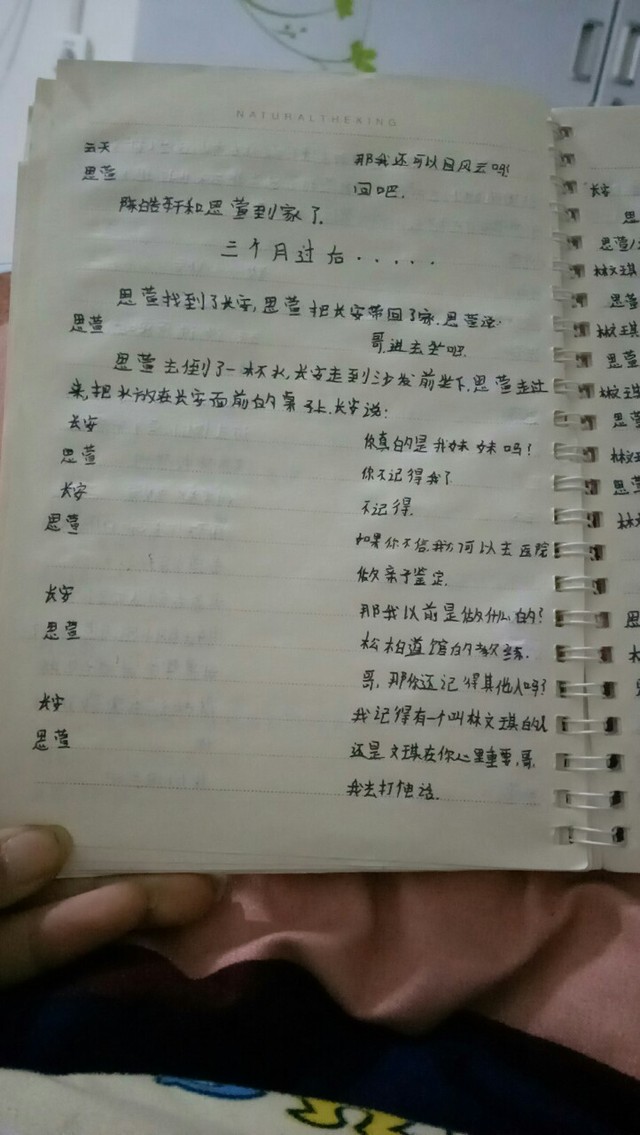 NATURALTHEXING
云天 那我还可以回风云吗?
思萱 回吧.
陈皓轩和思萱到家了.
三个月过后.....
思萱找到了长安,思萱把长安带回了家.思萱说:
思萱 哥,进去坐吧.
思萱去倒了一杯水,长安走到沙发前坐下.思萱走过
来,把水放在长安面前的桌子上.长安说:
长安 你真的是我妹妹吗?
思萱 你不记得我了.
长安 不记得.
思萱 如果你不信,我们可以去医院
做亲子鉴定.
长安 那我以前是做什么的?
思萱 松柏道馆的教练.
哥,那你还记得其他人吗?
长安 我记得有一个叫林文琪的人
思萱 还是文琪在你心里重要,哥,
我去打电话.
长安
思
思萱
林文琪
思萱
林文琪
思萱
林文琪
思萱
林文
思萱
林
思